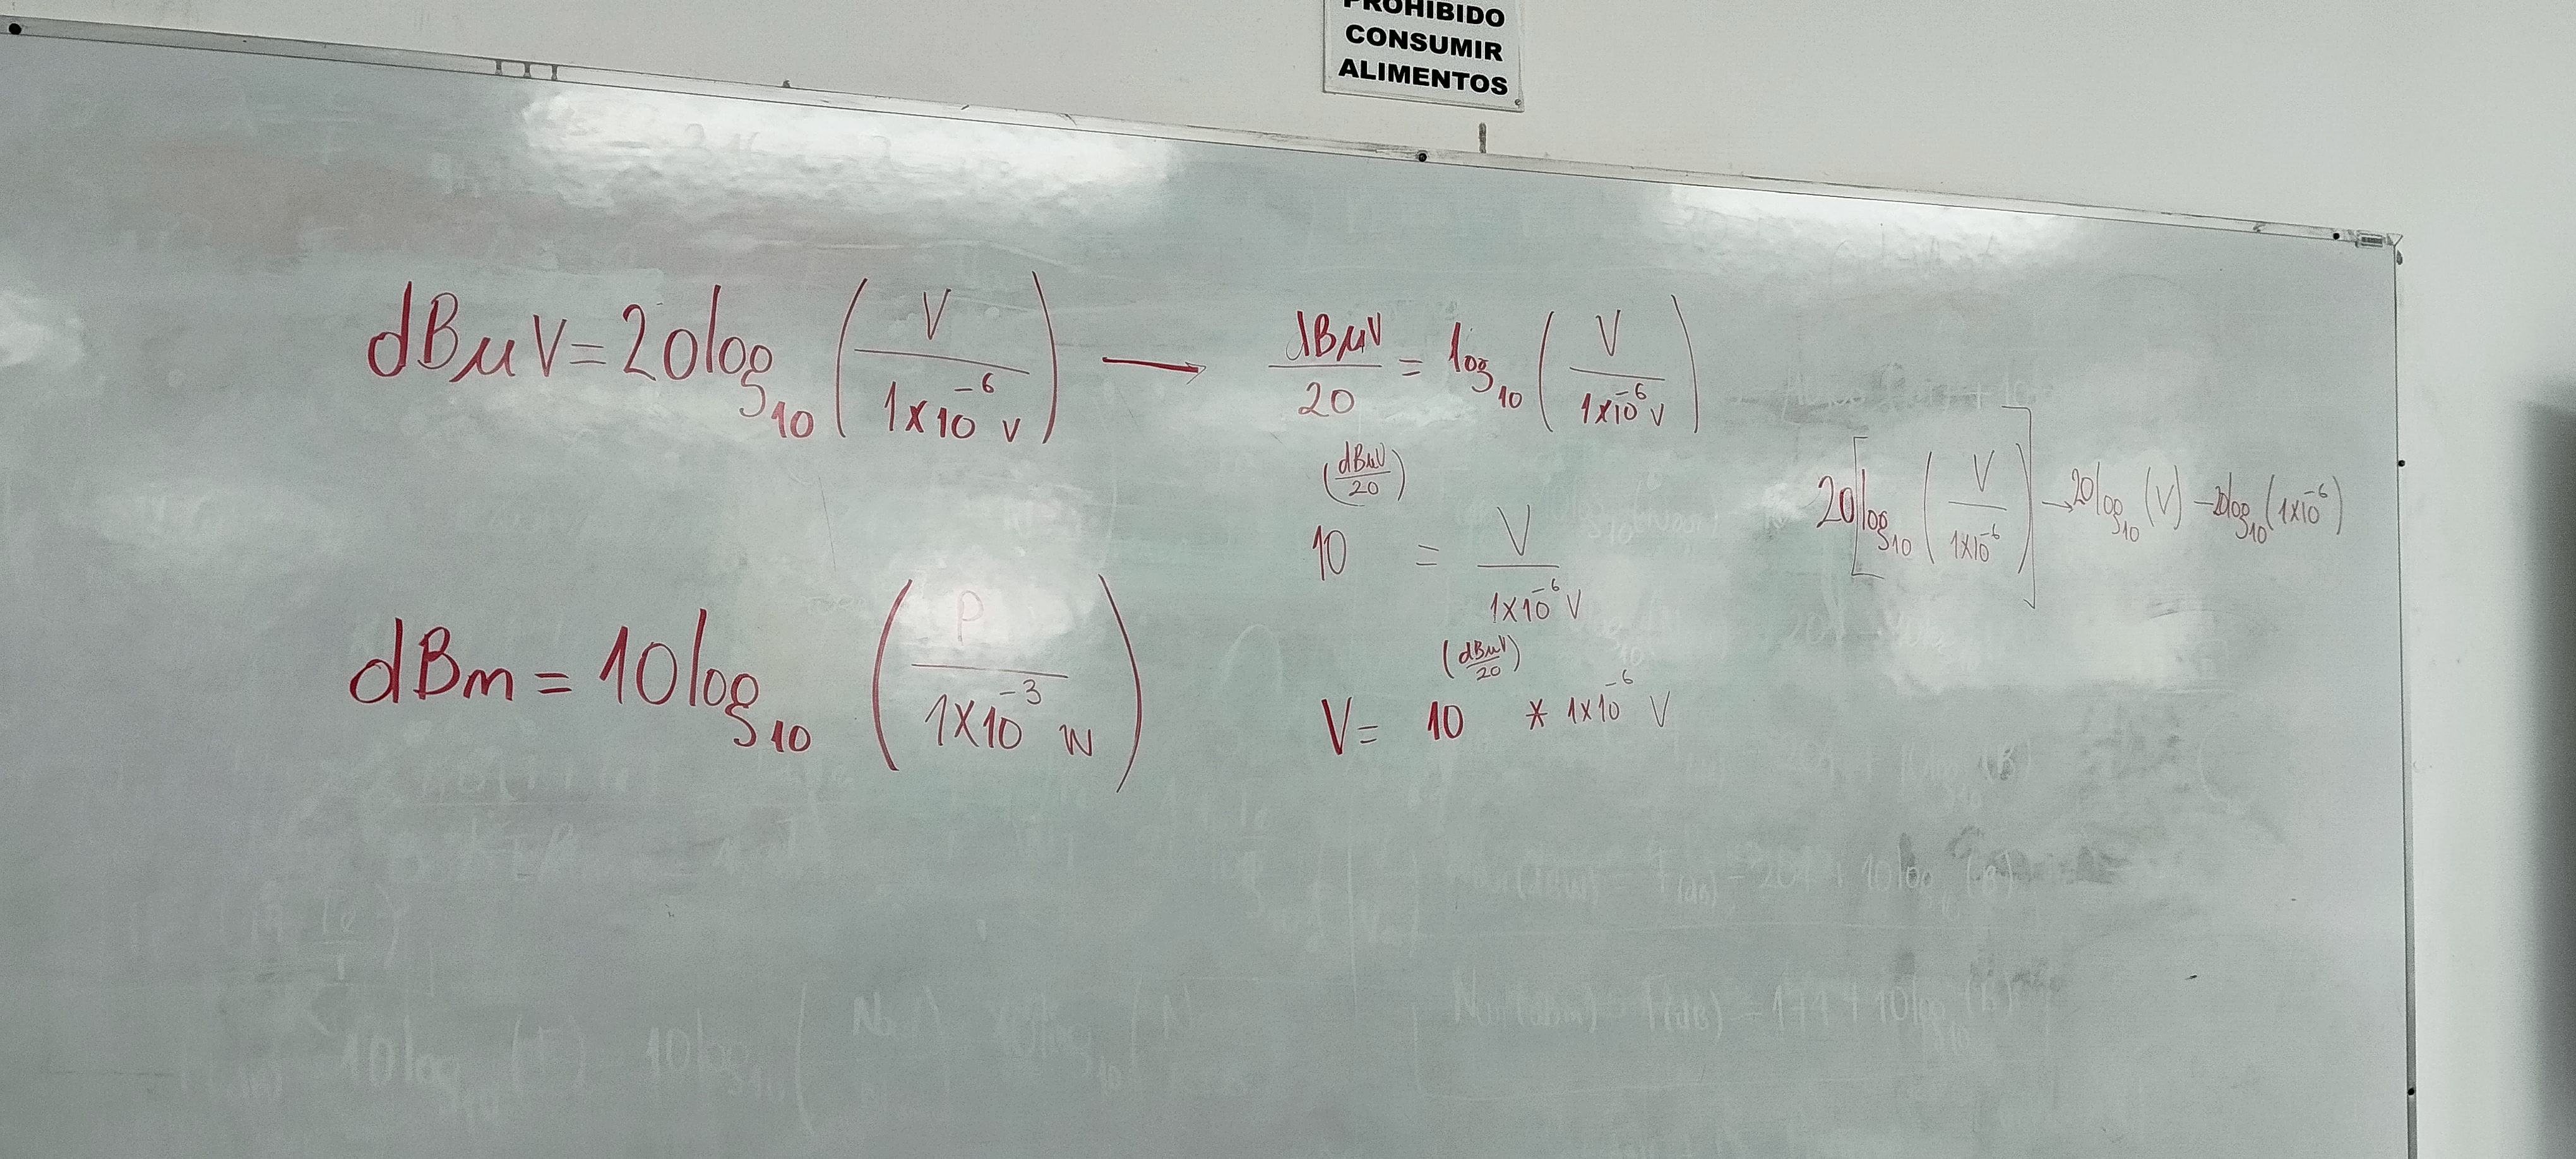 PROHIBIDO
CONSUMIR
ALIMENTOS
dBμV = 20log₁₀ (V / 1x10⁻⁶ V) → dBμV / 20 = log₁₀ (V / 1x10⁻⁶ V)
10^(dBμV / 20) = V / 1x10⁻⁶ V
V = 10^(dBμV / 20) * 1x10⁻⁶ V
20[log₁₀ (V / 1x10⁻⁶)] → 20log₁₀ (V) - 20log₁₀ (1x10⁻⁶)
dBm = 10log₁₀ (P / 1x10⁻³ W)